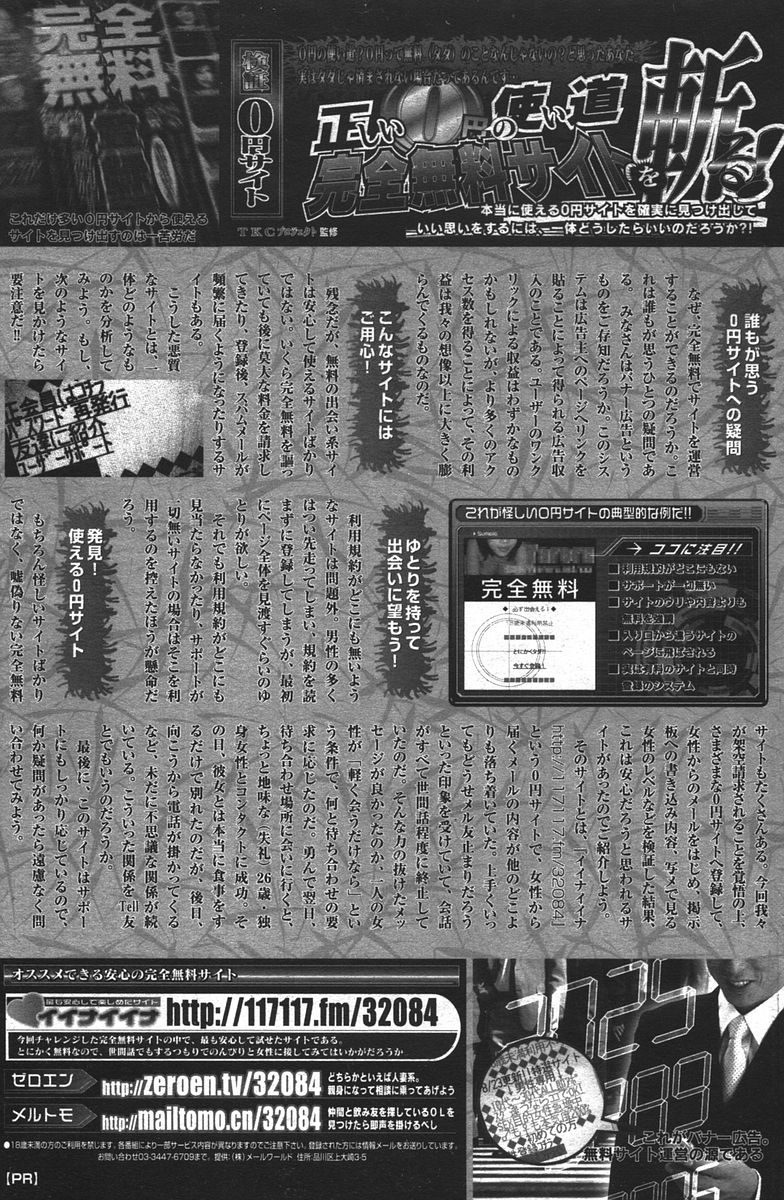 完全
無料
これだけ多い0円サイトから使える
サイトを見つけ出すのは一苦労だ
検証 0円サイト
TKCプロジェクト 監修
0円の使い道?0円って無料(タダ)のことなんじゃないの?と思ったあなた
実はタダじゃ済まされない場合だってあるんです…
正しい0円の使い道
完全無料サイトを斬る!
本当に使える0円サイトを確実に見つけ出して
いい思いをするには、一体どうしたらいいのだろうか?!
誰もが思う
0円サイトへの疑問
なぜ、完全無料でサイトを運営
することができるのだろうか。こ
れは誰もが思うひとつの疑問であ
る。みなさんはバナー広告という
ものをご存知だろうか。このシス
テムは広告主へのページへリンクを
貼ることによって得られる広告収
入のことである。ユーザーのワンク
リックによる収益はわずかなもの
かもしれないが、より多くのアク
セス数を得ることによって、その利
益は我々の想像以上に大きく膨
らんでくるものなのだ。
こんなサイトには
ご用心!
残念だが、無料の出会い系サイ
トは安心して使えるサイトばかり
ではない。いくら完全無料を謳っ
ていても後に莫大な料金を請求し
てきたり、登録後、スパムメールが
頻繁に届くようになったりするサ
イトもある。
こうした悪質
なサイトとは、一
体どのようなも
のかを分析して
みよう。もし、
次のようなサイ
トを見かけたら
要注意だ!!
正会員はコチラ
パスワード再発行
友達に紹介
ユーザーサポート
これが怪しい0円サイトの典型的な例だ!!
Sample
完全無料
必ず出会える!
18歳未満利用禁止
とにかくタダ!!
今すぐ登録!
ココに注目!!
■利用規約がどこにもない
■サポートが一切無い
■サイトのウリや内容よりも
無料を強調
■入り口から違うサイトの
ページに飛ばされる
■実は有料のサイトと同時
登録のシステム
ゆとりを持って
出会いに望もう!
利用規約がどこにも無いよう
なサイトは問題外。男性の多く
はつい先走ってしまい、規約を読
まずに登録してしまうが、最初
にページ全体を見渡すくらいのゆ
とりが欲しい。
それでも利用規約がどこにも
見当たらなかったり、サポートが
一切無いサイトの場合はそこを利
用するのを控えたほうが懸命だ
ろう。
発見!
使える0円サイト
もちろん怪しいサイトばかり
ではなく、嘘偽りない完全無料
サイトもたくさんある。今回我々
が架空請求されることを覚悟の上、
さまざまな0円サイトへ登録して、
女性からのメールをはじめ、掲示
板への書き込み内容、写メで見る
女性のレベルなどを検証した結果、
これは安心だろうと思われるサ
イトがあったのでご紹介しよう。
そのサイトとは、『イイナイイナ
http://117117.fm/32084』
という0円サイトで、女性から
届くメールの内容が他のどこよ
りも落ち着いていた。上手くいっ
てもどうせメル友止まりだろう
といった印象を受けていて、会話
がすべて世間話程度に終止して
いたのだ。そんな力の抜けたメッ
セージが良かったのか、一人の女
性が「軽く会うだけなら」とい
う条件で、何と待ち合わせの要
求に応じたのだ。勇んで翌日、
待ち合わせ場所に会いに行くと、
ちょっと地味な(失礼)26歳・独
身女性とコンタクトに成功。そ
の日、彼女とは本当に食事をす
るだけで別れたのだが、後日、
向こうから電話が掛かってくる
など、未だに不思議な関係が続
いている。こういった関係をTell友
とでもいうのだろうか。
最後に、このサイトはサポー
トにもしっかり応じているので、
何か疑問があったら遠慮なく問
い合わせてみよう。
オススメできる安心の完全無料サイト
最も安心して楽しめたサイト
イイナイイナ http://117117.fm/32084
今回チャレンジした完全無料サイトの中で、最も安心して試せたサイトである。
とにかく無料なので、世間話でもするつもりでのんびりと女性に接してみてはいかがだろうか
ゼロエン http://zeroen.tv/32084 どちらかといえば人妻系。
親身になって相談に乗ってあげよう
メルトモ http://mailtomo.cn/32084 仲間と飲み友を探しているOLを
見つけたら即声を掛けるべし
●18歳未満の方のご利用を禁じます。各番組により一部サービス内容が異なりますのでご注意下さい。登録された方には情報メールをお送りしています。
お問い合わせ03-3447-6709まで。提供:(株)メールワールド 住所:品川区上大崎3-5
【PR】
これがバナー広告。
無料サイト運営の源である